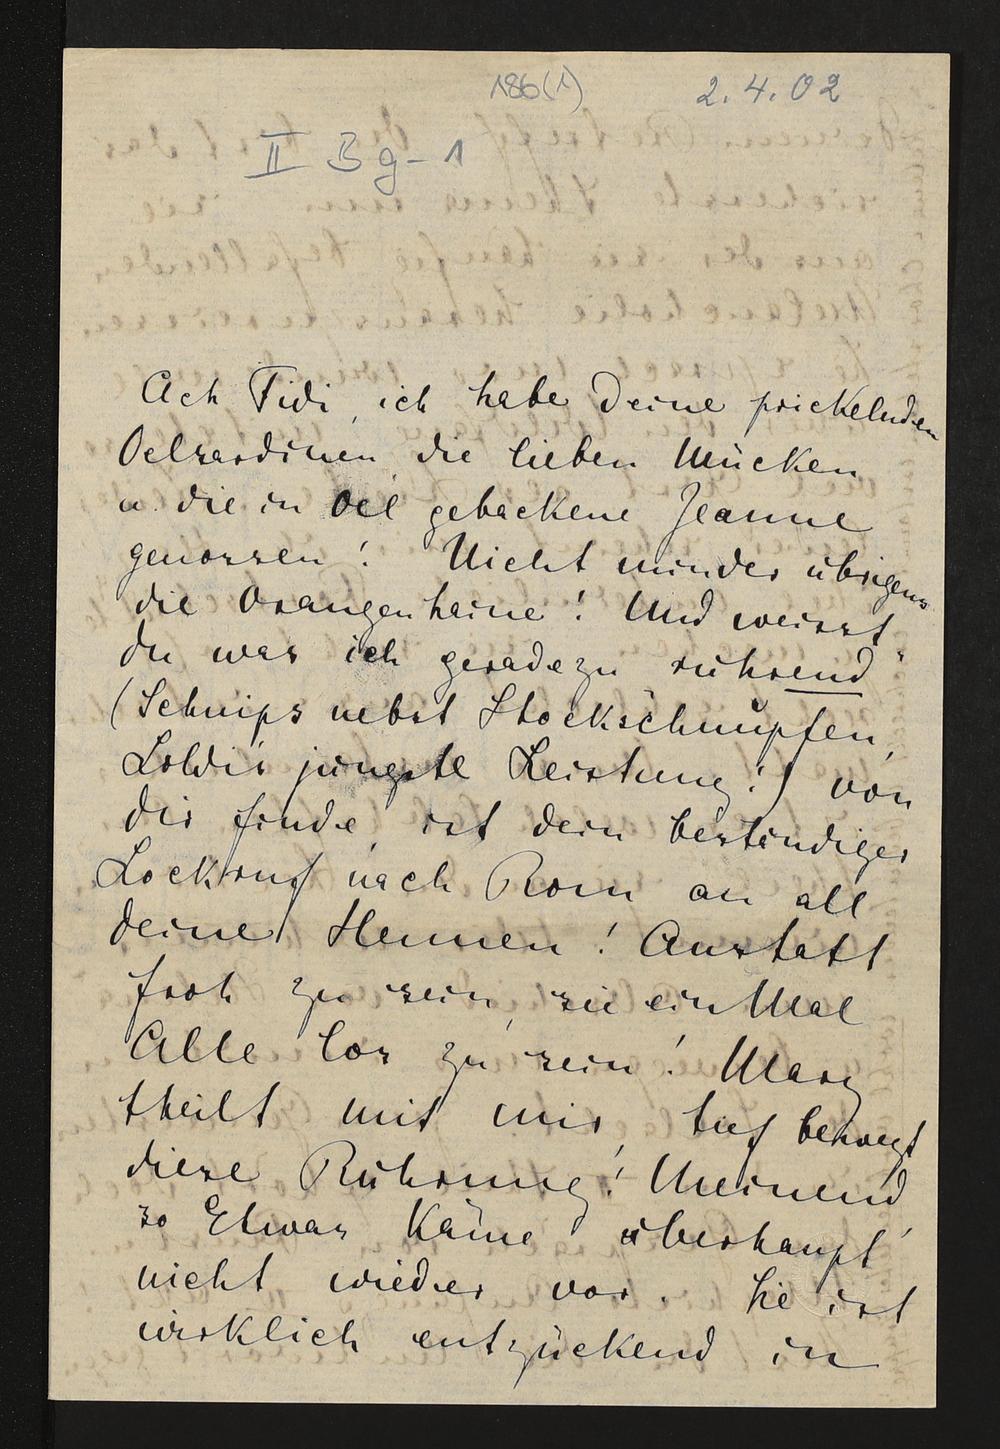 186(1)
2.4.02
II B g-1
Ach Fidi, ich habe Deine prickelnden
Oelsardinen, die lieben Mücken
u. die in Oel gebackene Jeanne
genossen! Nicht minder übrigens
die Orangenhaine! Und weisst
du was ich geradezu rührend
(Schnips nebst Stockschnupfen,
Loldi's jüngste Leistung!) von
dir finde, ist dein beständiger
Lockruf nach Rom an all
deine Hennen! Anstatt
froh zu sein, sie ein Mal
Alle los zu sein! Mary
theilt mit mir, tief bewegt
diese Rührung! Meinend
so Etwas käme überhaupt
nicht wieder vor. Sie ist
wirklich entzückend in